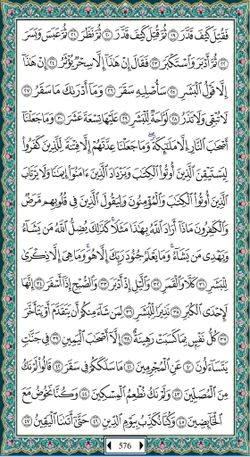 فَقُتِلَ كَيْفَ قَدَّرَ ١٩ ثُمَّ قُتِلَ كَيْفَ قَدَّرَ ٢٠ ثُمَّ نَظَرَ ٢١ ثُمَّ عَبَسَ وَبَسَرَ
٢٢ ثُمَّ أَدْبَرَ وَٱسْتَكْبَرَ ٢٣ فَقَالَ إِنْ هَٰذَآ إِلَّا سِحْرٌ يُؤْثَرُ ٢٤ إِنْ هَٰذَآ
إِلَّا قَوْلُ ٱلْبَشَرِ ٢٥ سَأُصْلِيهِ سَقَرَ ٢٦ وَمَآ أَدْرَىٰكَ مَا سَقَرُ ٢٧
لَا تُبْقِى وَلَا تَذَرُ ٢٨ لَوَّاحَةٌ لِّلْبَشَرِ ٢٩ عَلَيْهَا تِسْعَةَ عَشَرَ ٣٠ وَمَا جَعَلْنَآ
أَصْحَٰبَ ٱلنَّارِ إِلَّا مَلَٰٓئِكَةً وَمَا جَعَلْنَا عِدَّتَهُمْ إِلَّا فِتْنَةً لِّلَّذِينَ كَفَرُوا۟
لِيَسْتَيْقِنَ ٱلَّذِينَ أُوتُوا۟ ٱلْكِتَٰبَ وَيَزْدَادَ ٱلَّذِينَ ءَامَنُوٓا۟ إِيمَٰنًا وَلَا يَرْتَابَ
ٱلَّذِينَ أُوتُوا۟ ٱلْكِتَٰبَ وَٱلْمُؤْمِنُونَ وَلِيَقُولَ ٱلَّذِينَ فِى قُلُوبِهِم مَّرَضٌ
وَٱلْكَٰفِرُونَ مَاذَآ أَرَادَ ٱللَّهُ بِهَٰذَا مَثَلًا كَذَٰلِكَ يُضِلُّ ٱللَّهُ مَن يَشَآءُ
وَيَهْدِى مَن يَشَآءُ وَمَا يَعْلَمُ جُنُودَ رَبِّكَ إِلَّا هُوَ وَمَا هِىَ إِلَّا ذِكْرَىٰ
لِلْبَشَرِ ٣١ كَلَّا وَٱلْقَمَرِ ٣٢ وَٱلَّيْلِ إِذْ أَدْبَرَ ٣٣ وَٱلصُّبْحِ إِذَآ أَسْفَرَ ٣٤ إِنَّهَا
لَإِحْدَى ٱلْكُبَرِ ٣٥ نَذِيرًا لِّلْبَشَرِ ٣٦ لِمَن شَآءَ مِنكُمْ أَن يَتَقَدَّمَ أَوْ يَتَأَخَّرَ ٣٧
كُلُّ نَفْسٍۭ بِمَا كَسَبَتْ رَهِينَةٌ ٣٨ إِلَّآ أَصْحَٰبَ ٱلْيَمِينِ ٣٩ فِى جَنَّٰتٍ
يَتَسَآءَلُونَ ٤٠ عَنِ ٱلْمُجْرِمِينَ ٤١ مَا سَلَكَكُمْ فِى سَقَرَ ٤٢ قَالُوا۟ لَمْ نَكُ
مِنَ ٱلْمُصَلِّينَ ٤٣ وَلَمْ نَكُ نُطْعِمُ ٱلْمِسْكِينَ ٤٤ وَكُنَّا نَخُوضُ مَعَ
ٱلْخَآئِضِينَ ٤٥ وَكُنَّا نُكَذِّبُ بِيَوْمِ ٱلدِّينِ ٤٦ حَتَّىٰٓ أَتَىٰنَا ٱلْيَقِينُ ٤٧
576